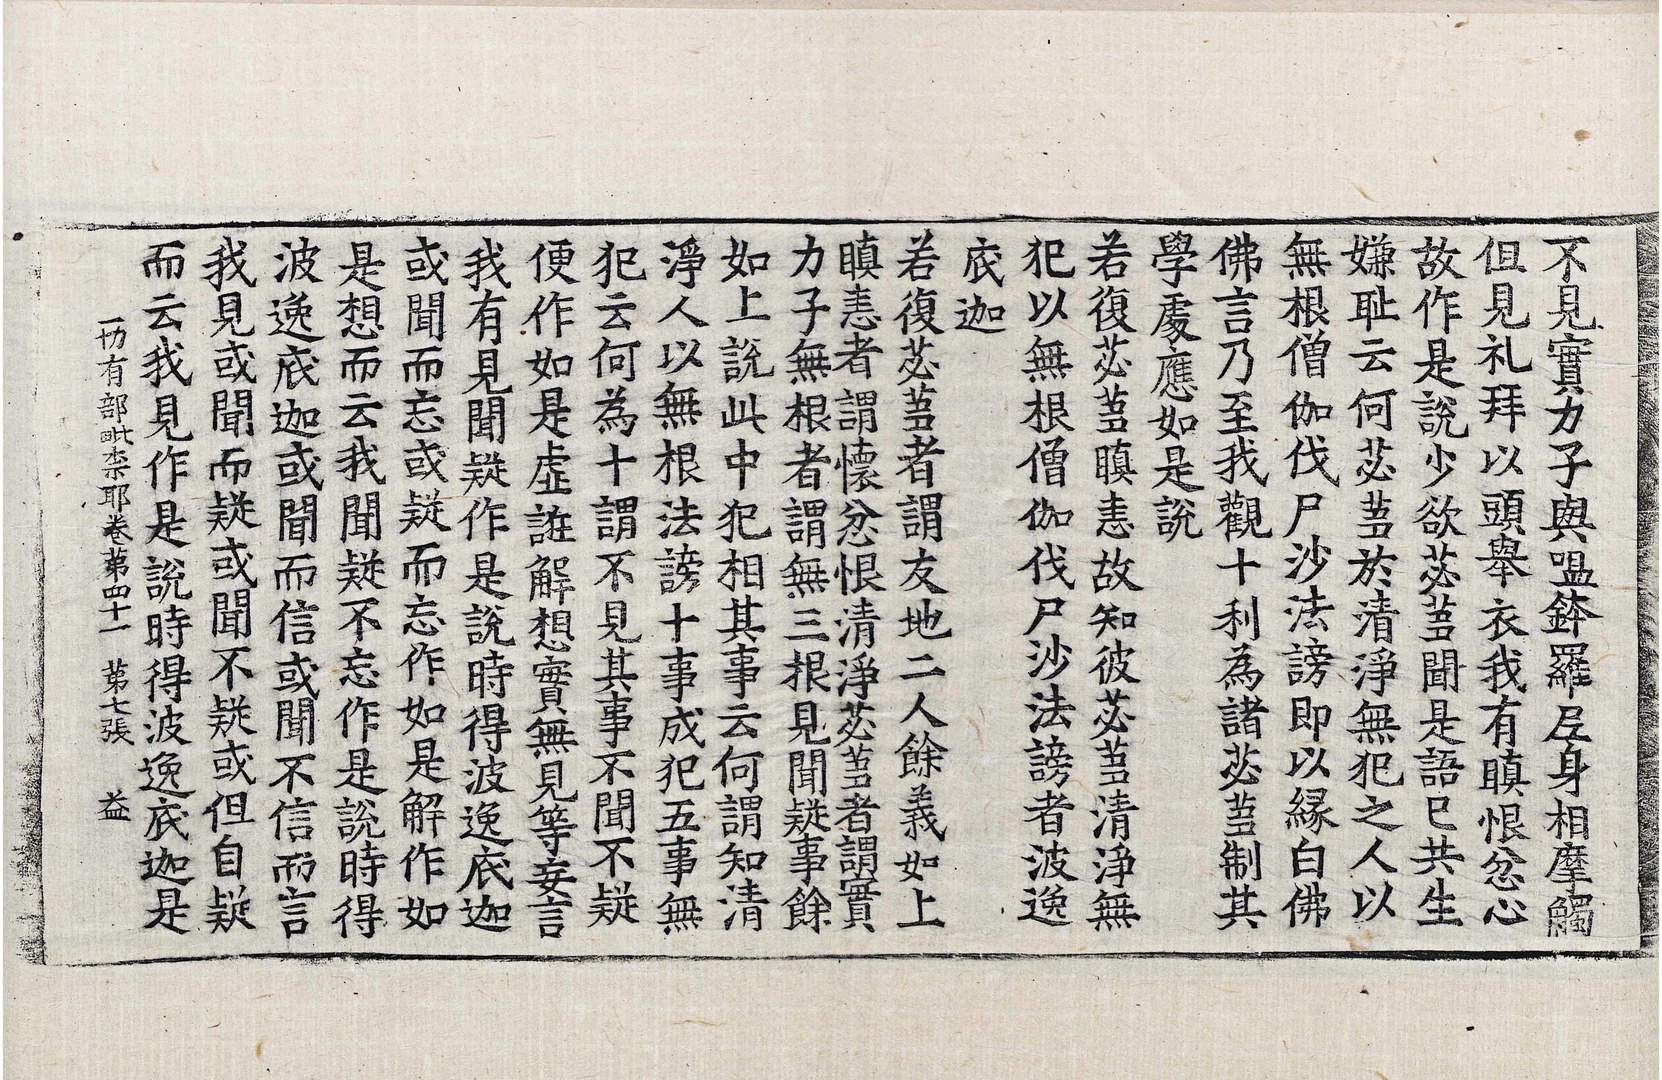 不見實力子與嗢鉢羅尼身相摩觸
但見礼拜以頭舉衣我有瞋恨忿心
故作是說少欲苾芻聞是語已共生
嫌耻云何苾芻於清淨無犯之人以
無根僧伽伐尸沙法謗即以縁白佛
佛言乃至我觀十利為諸苾芻制其
學處應如是說
若復苾芻瞋恚故知彼苾芻清淨無
犯以無根僧伽伐尸沙法謗者波逸
底迦
若復苾芻者謂友地二人餘義如上
瞋恚者謂懷忿恨清淨苾芻者謂實
力子無根者謂無三根見聞疑事餘
如上說此中犯相其事云何謂知清
淨人以無根法謗十事成犯五事無
犯云何為十謂不見其事不聞不疑
便作如是虛誑解想實無見等妄言
我有見聞疑作是說時得波逸底迦
或聞而忘或疑而忘作如是解作如
是想而云我聞疑不忘作是說時得
波逸底迦或聞而信或聞不信而言
我見或聞而疑或聞不疑或但自疑
而云我見作是說時得波逸底迦是
一切有部毗柰耶卷苐四十一 苐七張 益